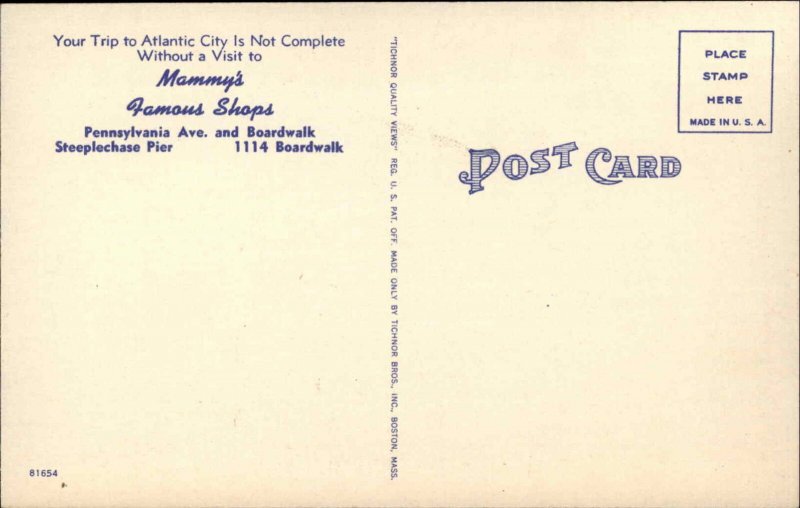 Your Trip to Atlantic City Is Not Complete
Without a Visit to
Mammy's
Famous Shops
Pennsylvania Ave. and Boardwalk
Steeplechase Pier 1114 Boardwalk
81654
"TICHNOR QUALITY VIEWS" REG. U. S. PAT. OFF. MADE ONLY BY TICHNOR BROS., INC., BOSTON, MASS.
POST CARD
PLACE
STAMP
HERE
MADE IN U. S. A.